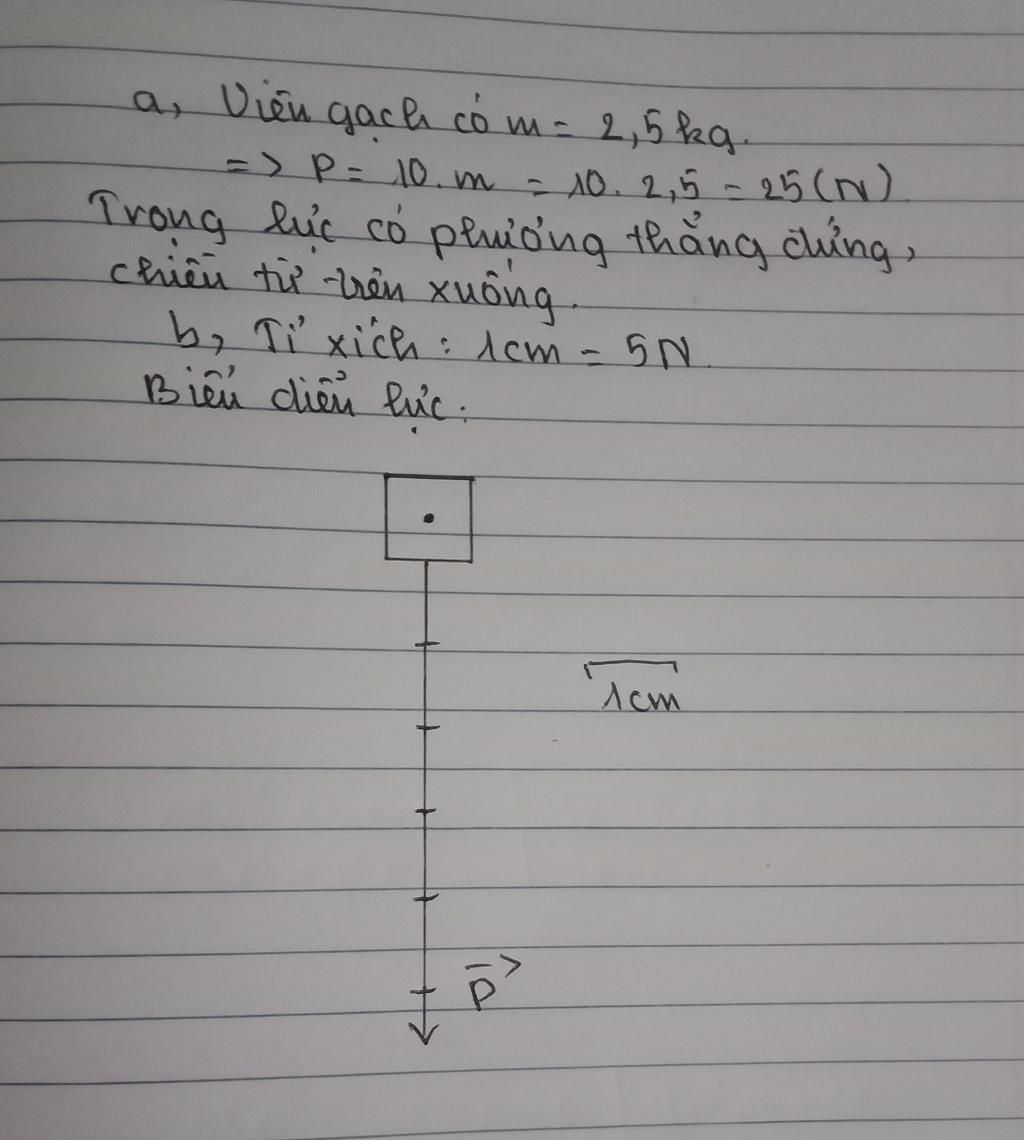 a, Viên gạch có m = 2,5 kg.
=> P = 10.m = 10. 2,5 = 25 (N)
Trọng lực có phương thẳng đứng,
chiều từ trên xuống.
b, Tỉ xích : 1cm = 5N
Biểu diễn lực:
1cm
P